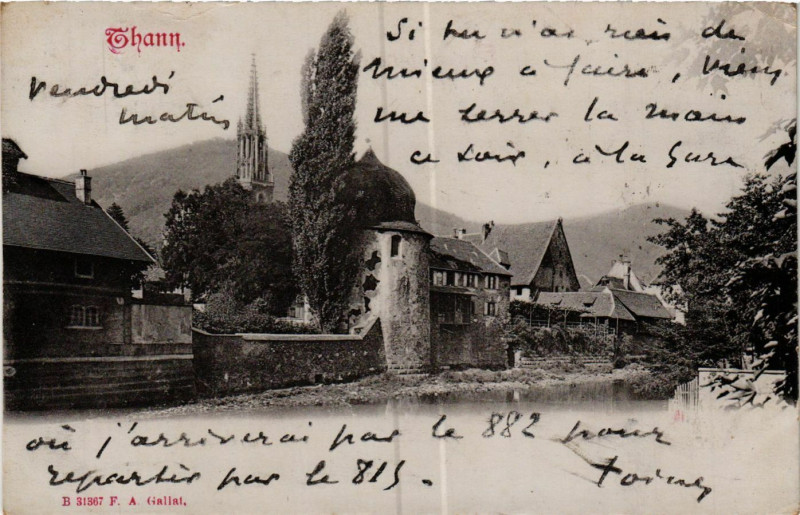 Thann.
Vendredi
matin
Si tu n'as rien de
mieux à faire, viens
me serrer la main
ce soir, à la gare
où j'arriverai par le 882 pour
repartir par le 815.
B 31367 F. A. Gallat.